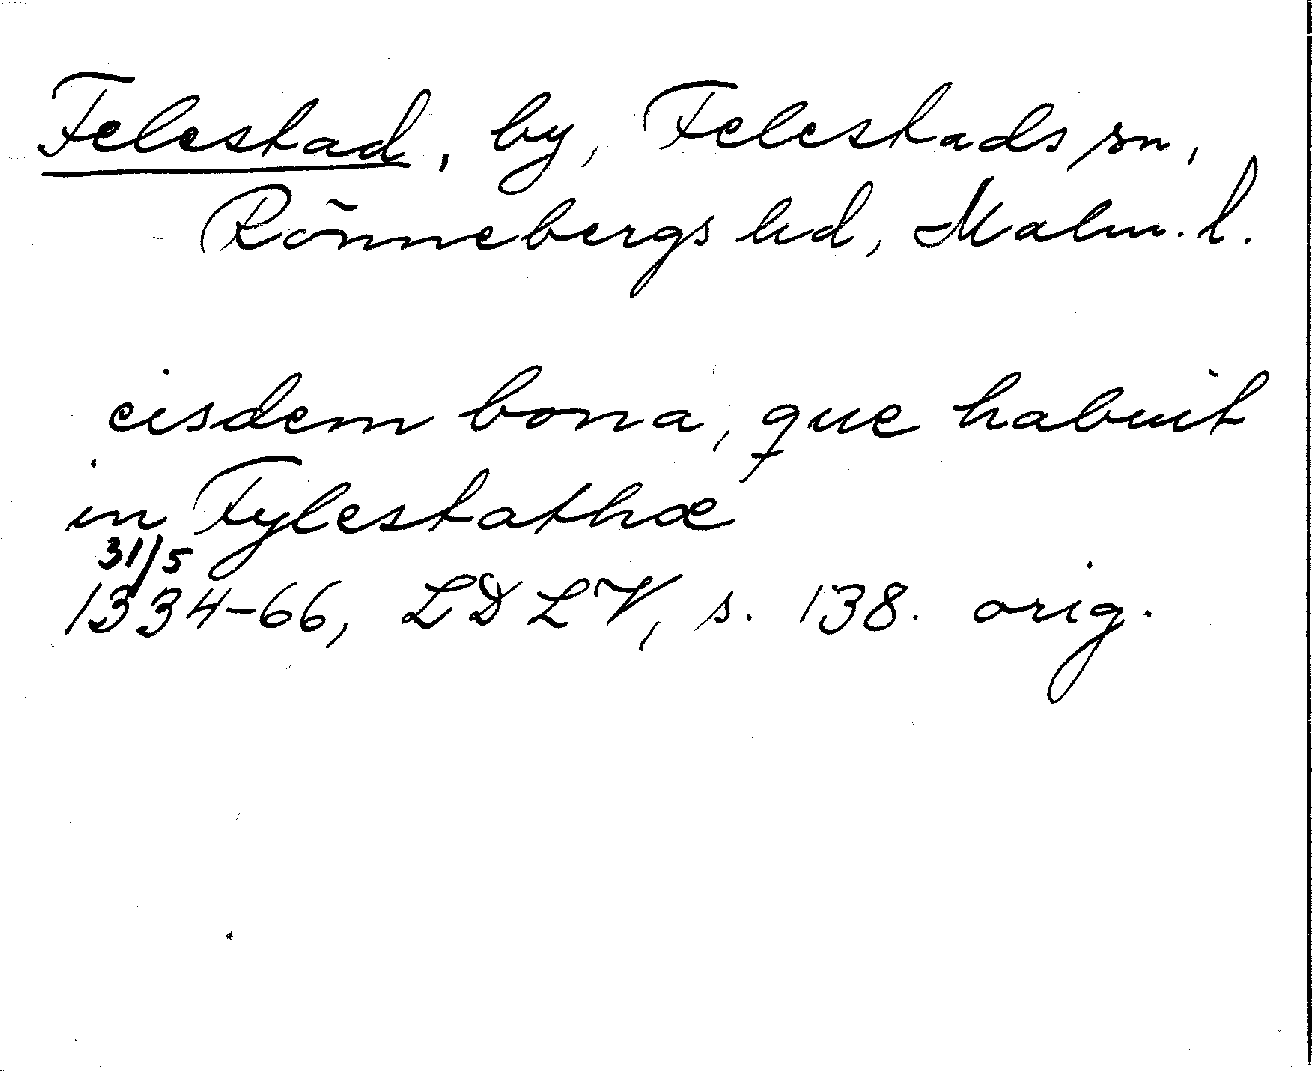 Felestad, by, Felestads sn,
Rönnebergs hd, Malm. l.
eisdem bona, que habuit
in Fylestathæ
31/5
1334-66, LDLV, s. 138. orig.